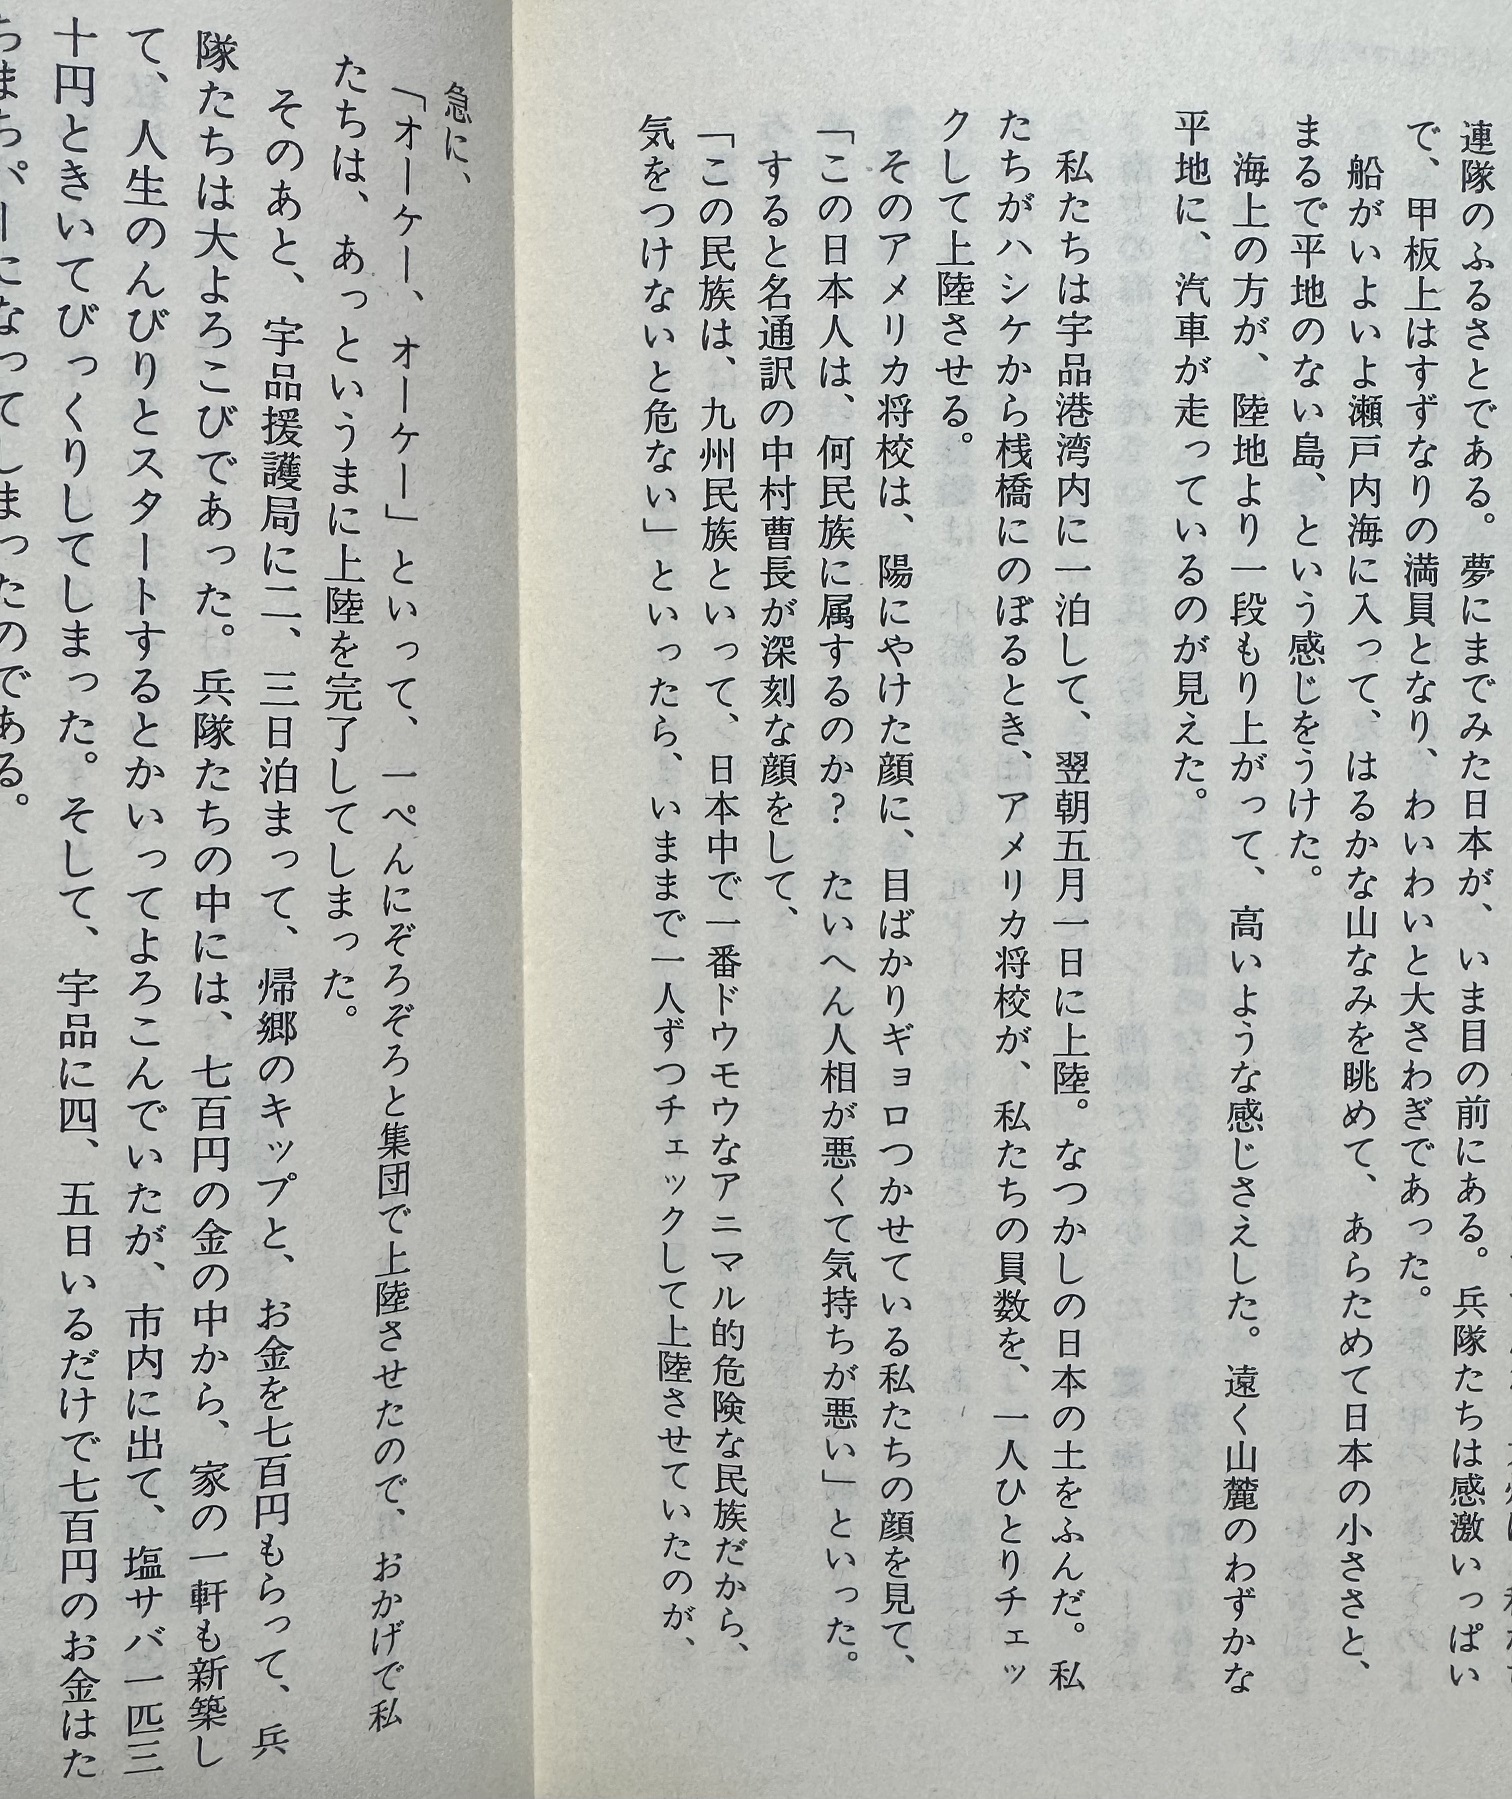 連隊のふるさとである。夢にまでみた日本が、いま目の前にある。兵隊たちは感激いっぱい
で、甲板上はすずなりの満員となり、わいわいと大さわぎであった。
船がいよいよ瀬戸内海に入って、はるかな山なみを眺めて、あらためて日本の小ささと、
まるで平地のない島、という感じをうけた。
海上の方が、陸地より一段もり上がって、高いような感じさえした。遠く山麓のわずかな
平地に、汽車が走っているのが見えた。
私たちは宇品港湾内に一泊して、翌朝五月一日に上陸。なつかしの日本の土をふんだ。私
たちがハシケから桟橋にのぼるとき、アメリカ将校が、私たちの員数を、一人ひとりチェッ
クして上陸させる。
そのアメリカ将校は、陽にやけた顔に、目ばかりギョロつかせている私たちの顔を見て、
「この日本人は、何民族に属するのか? たいへん人相が悪くて気持ちが悪い」といった。
すると名通訳の中村曹長が深刻な顔をして、
「この民族は、九州民族といって、日本中で一番ドウモウなアニマル的危険な民族だから、
気をつけないと危ない」といったら、いままで一人ずつチェックして上陸させていたのが、
急に、
「オーケー、オーケー」といって、一ぺんにぞろぞろと集団で上陸させたので、おかげで私
たちは、あっというまに上陸を完了してしまった。
そのあと、宇品援護局に二、三日泊まって、帰郷のキップと、お金を七百円もらって、兵
隊たちは大よろこびであった。兵隊たちの中には、七百円の金の中から、家の一軒も新築し
て、人生のんびりとスタートするとかいってよろこんでいたが、市内に出て、塩サバ一匹三
十円ときいてびっくりしてしまった。そして、宇品に四、五日いるだけで七百円のお金はた
ちまちパーになってしまったのである。